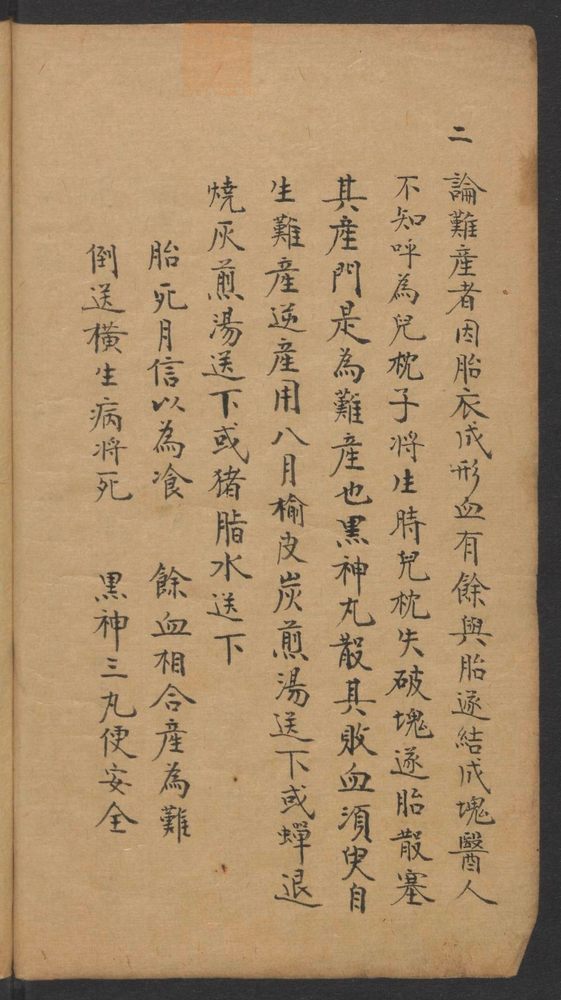 二
論難產者因胎衣成形血有餘與胎遂結成塊醫人
不知呼為兒枕子將生時兒枕失破塊遂胎散塞
其產門是為難產也黑神丸散其敗血須臾自
生難產逆產用八月榆皮炭煎湯送下或蟬退
燒灰煎湯送下或猪脂水送下
胎死月信以為飡 餘血相合產為難
倒送橫生病將死 黑神三丸便安全